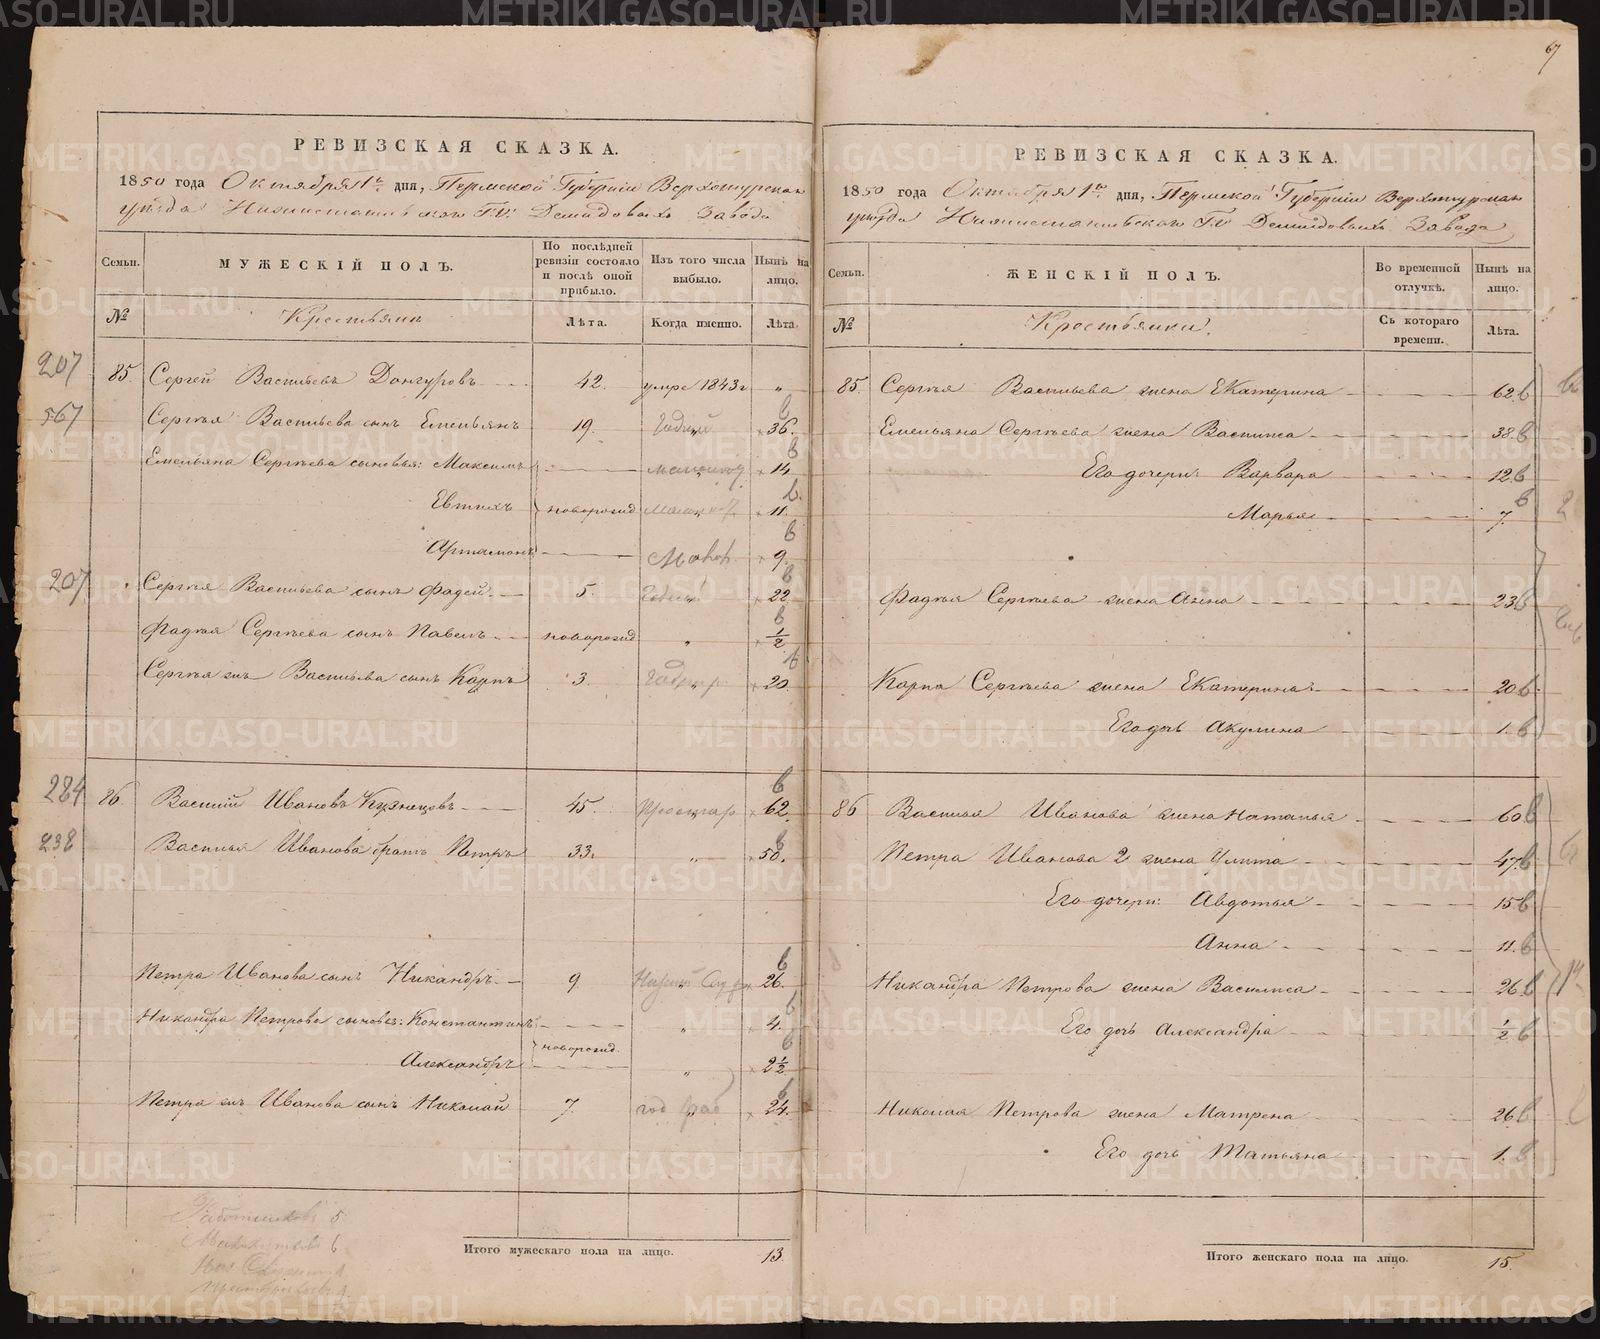 67
РЕВИЗСКАЯ СКАЗКА.
1850 года Октября 1го дня, Пермской Губернии Верхотурскаго
уѣзда Нижнетагильскаго Гг. Демидовыхъ Завода
Семьи. МУЖЕСКІЙ ПОЛЪ. По послѣдней ревизіи состояло и послѣ оной прибыло. Изъ того числа выбыло. Нынѣ на лицо.
№ Крестьянъ Лѣта. Когда именно. Лѣта.
207 85. Сергей Васильевъ Донгуровъ 42. умре 1843 г. "
567 Сергѣя Васильева сынъ Емельянъ 19. Годный 36.
Емельяна Сергѣева сыновья: Максимъ 14
Евтихъ новорожд. 11.
Артамонъ 9.
207 Сергѣя Васильева сынъ Фадей 5. Годный 22
Фадѣя Сергѣева сынъ Павелъ новорожд " 1/2
Сергѣя жъ Васильева сынъ Карпъ 3. 20
284 86. Василій Ивановъ Кузнецовъ 45. 62.
238 Василья Иванова братъ Петръ 33. " 50.
Петра Иванова сынъ Никандръ 9 26.
Никандра Петрова сыновья: Константинъ " 4.
новорожд.
Александръ " 2 1/2
Петра жъ Иванова сынъ Николай 7. год 24.
Итого мужескаго пола на лицо. 13.
РЕВИЗСКАЯ СКАЗКА.
1850 года Октября 1го дня, Пермской Губерніи Верхотурскаго
уѣзда Нижнетагильскаго Гг. Демидовыхъ Завода
Семьи. ЖЕНСКІЙ ПОЛЪ. Во временной отлучкѣ. Нынѣ на лицо.
№ Крестьянки. Съ котораго времени. Лѣта.
85. Сергѣя Васильева жена Екатерина 62.
Емельяна Сергѣева жена Василиса 38.
Его дочери: Варвара 12.
Марья 7.
Фадѣя Сергѣева жена Анна 23
Карпа Сергѣева жена Екатерина 20
Его дочь Акулина 1.
86 Василья Иванова жена Наталья 60.
Петра Иванова 2 жена Улита 47.
Его дочери: Авдотья 15
Анна 11.
Никандра Петрова жена Василиса 26.
Его дочь Александра 1/2
Николая Петрова жена Матрена 26
Его дочь Татьяна 1.
Итого женскаго пола на лицо. 15.
METRIKI.GASO-URAL.RU